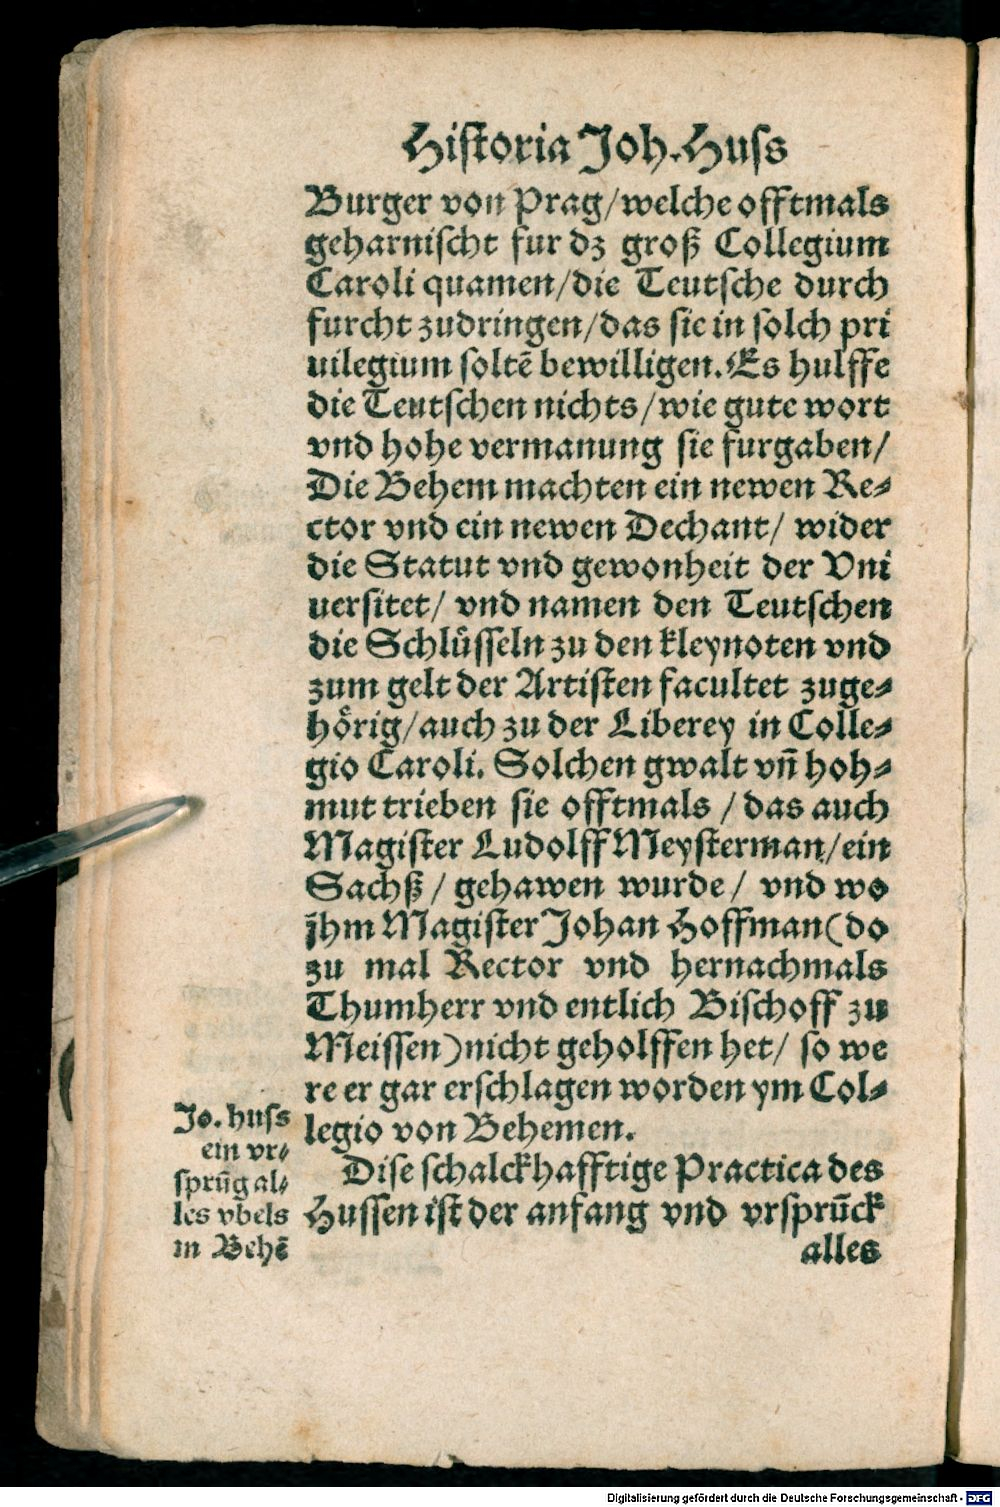 Historia Joh. Huss
Burger von Prag/welche offtmals
geharnischt fur dz groß Collegium
Caroli quamen/die Teutsche durch
furcht zudringen/das sie in solch pri
uilegium soltē bewilligen. Es hulffe
die Teutschen nichts/wie gute wort
vnd hohe vermanung sie furgaben/
Die Behem machten ein newen Re-
ctor vnd ein newen Dechant/ wider
die Statut vnd gewonheit der Vni
uersitet/ vnd namen den Teutschen
die Schlüsseln zu den kleynoten vnd
zum gelt der Artisten facultet zuge-
hörig/auch zu der Liberey in Colle-
gio Caroli. Solchen gwalt vñ hoh-
mut trieben sie offtmals /das auch
Magister Ludolff Meysterman/ein
Sachß/ gehawen wurde/ vnd wo
jhm Magister Johan Hoffman(do
zu mal Rector vnd hernachmals
Thumherr vnd entlich Bischoff zu
Meissen)nicht geholffen het/ so we
re er gar erschlagen worden ym Col-
legio von Behemen.
Jo. huss
ein vr-
sprūg al-
les vbels
in Behē
Dise schalckhafftige Practica des
Hussen ist der anfang vnd vrsprūck
alles
Digitalisierung gefördert durch die Deutsche Forschungsgemeinschaft - DFG